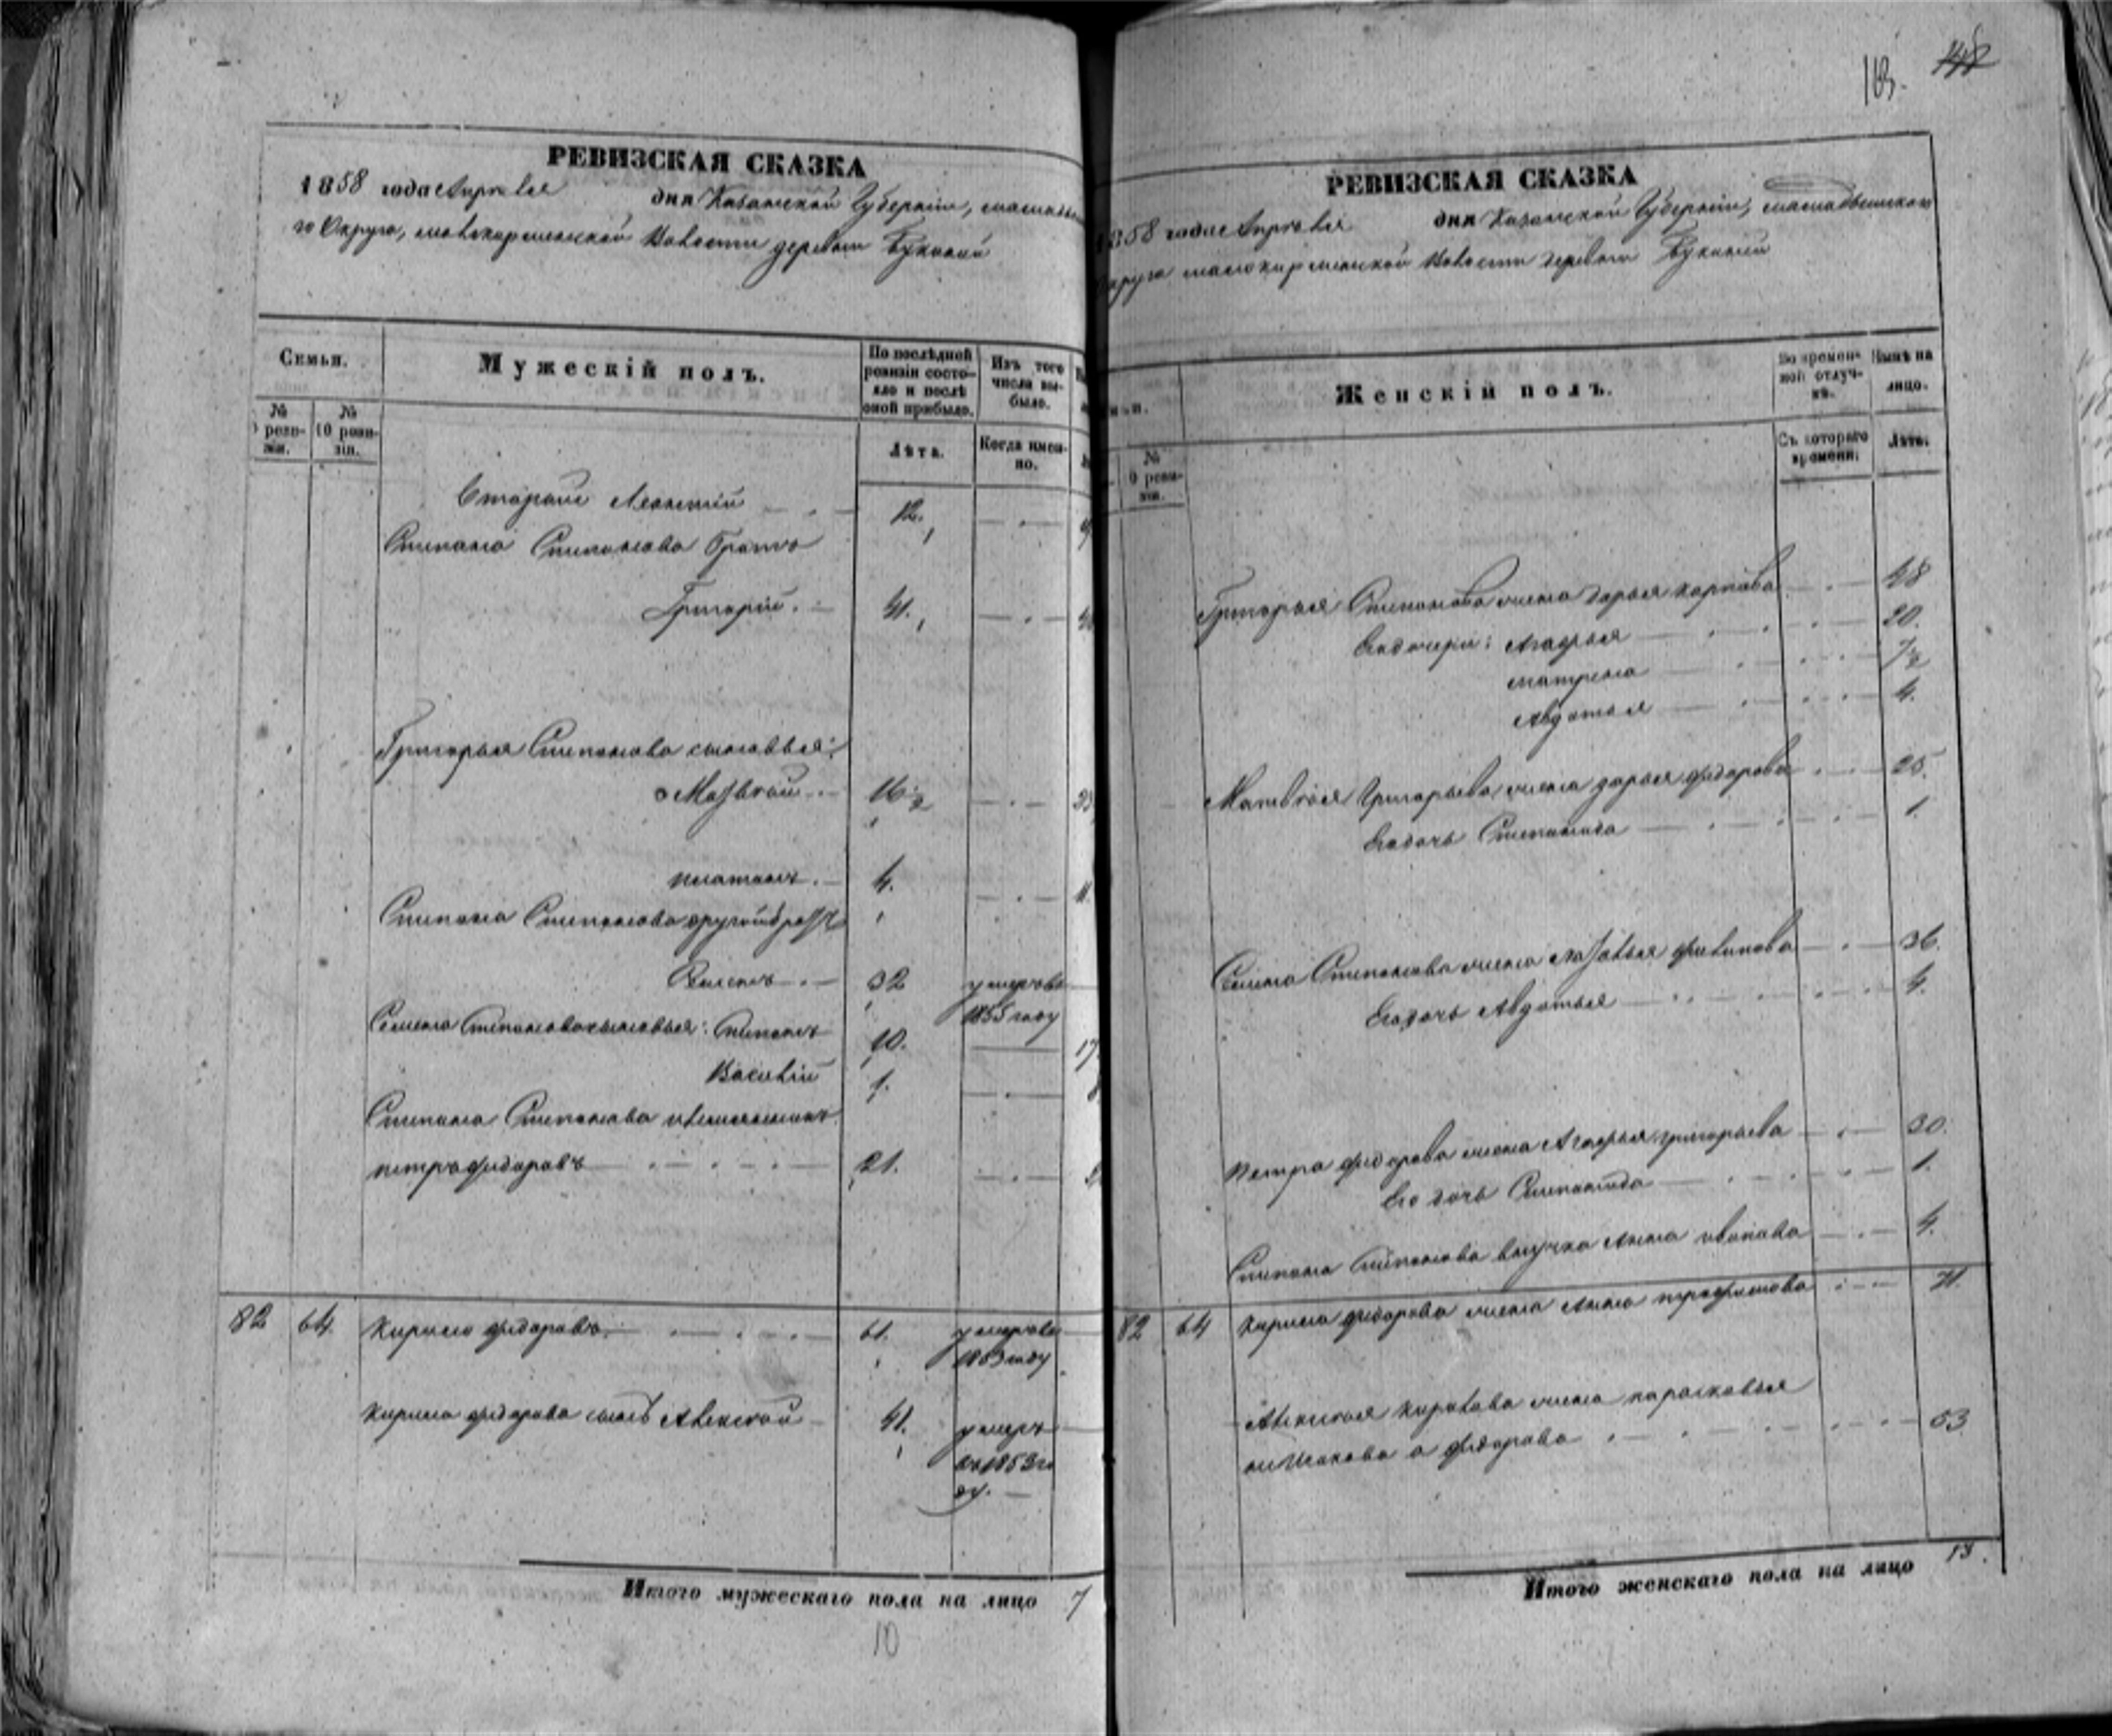 РЕВИЗСКАЯ СКАЗКА
1858 года Апреля дня Казанской Губернии, мамадыш
го Округа, малокирменской Волости деревни Букеней
Семьи.
Мужескій полъ.
По послѣдней ревизіи состояло и послѣ оной прибыло.
Изъ того числа выбыло.
№ ревизіи.
№ 10 ревизіи.
Лѣта.
Когда именно.
Вторый Леонтий 12.
Степана Степанова братъ
Григорій. 41.
Григорья Степанова сыновья:
Матвей 16½
платонъ. 4.
Степана Степанова другой братъ
Семенъ 32 умеръ въ
1855 году
Семена Степанова сыновья: Степанъ 10. 17
Василій 1.
Степана Степанова племянникъ
петръ федоровъ 21.
82 64 Кирило федоровъ 61. умеръ въ
1853 году
Кирила федорова сынъ Алексей 41. умеръ
въ 1853 го
ду.
Итого мужескаго пола на лицо 7
10
163. 148
РЕВИЗСКАЯ СКАЗКА
1858 года Апреля дня Казанской Губернии, мамадышскаго
Округа малокирменской Волости деревни Букеней
Женскій полъ.
Во временной отлучкѣ.
Нынѣ на лицо.
№ 10 ревизіи.
Съ котораго времени.
Лѣта.
Григорья Степанова жена Дарья карпова 48
Его дочери: Агафья 20.
матрена 7½
Авдотья 4.
Матвея Григорьева жена дарья федорова 25.
Его дочь Степанида 1.
Семена Степанова жена наталья филипова 36.
Его дочь Авдотья 4.
петра федорова жена Агафья григорьева 30.
Его дочь Степанида 1.
Степана Степанова внучка Анна иванова 4.
82 64 Кирила федорова жена Анна трофимова 71.
Алексея кирилова жена парасковья
а федорова 53
Итого женскаго пола на лицо 13.